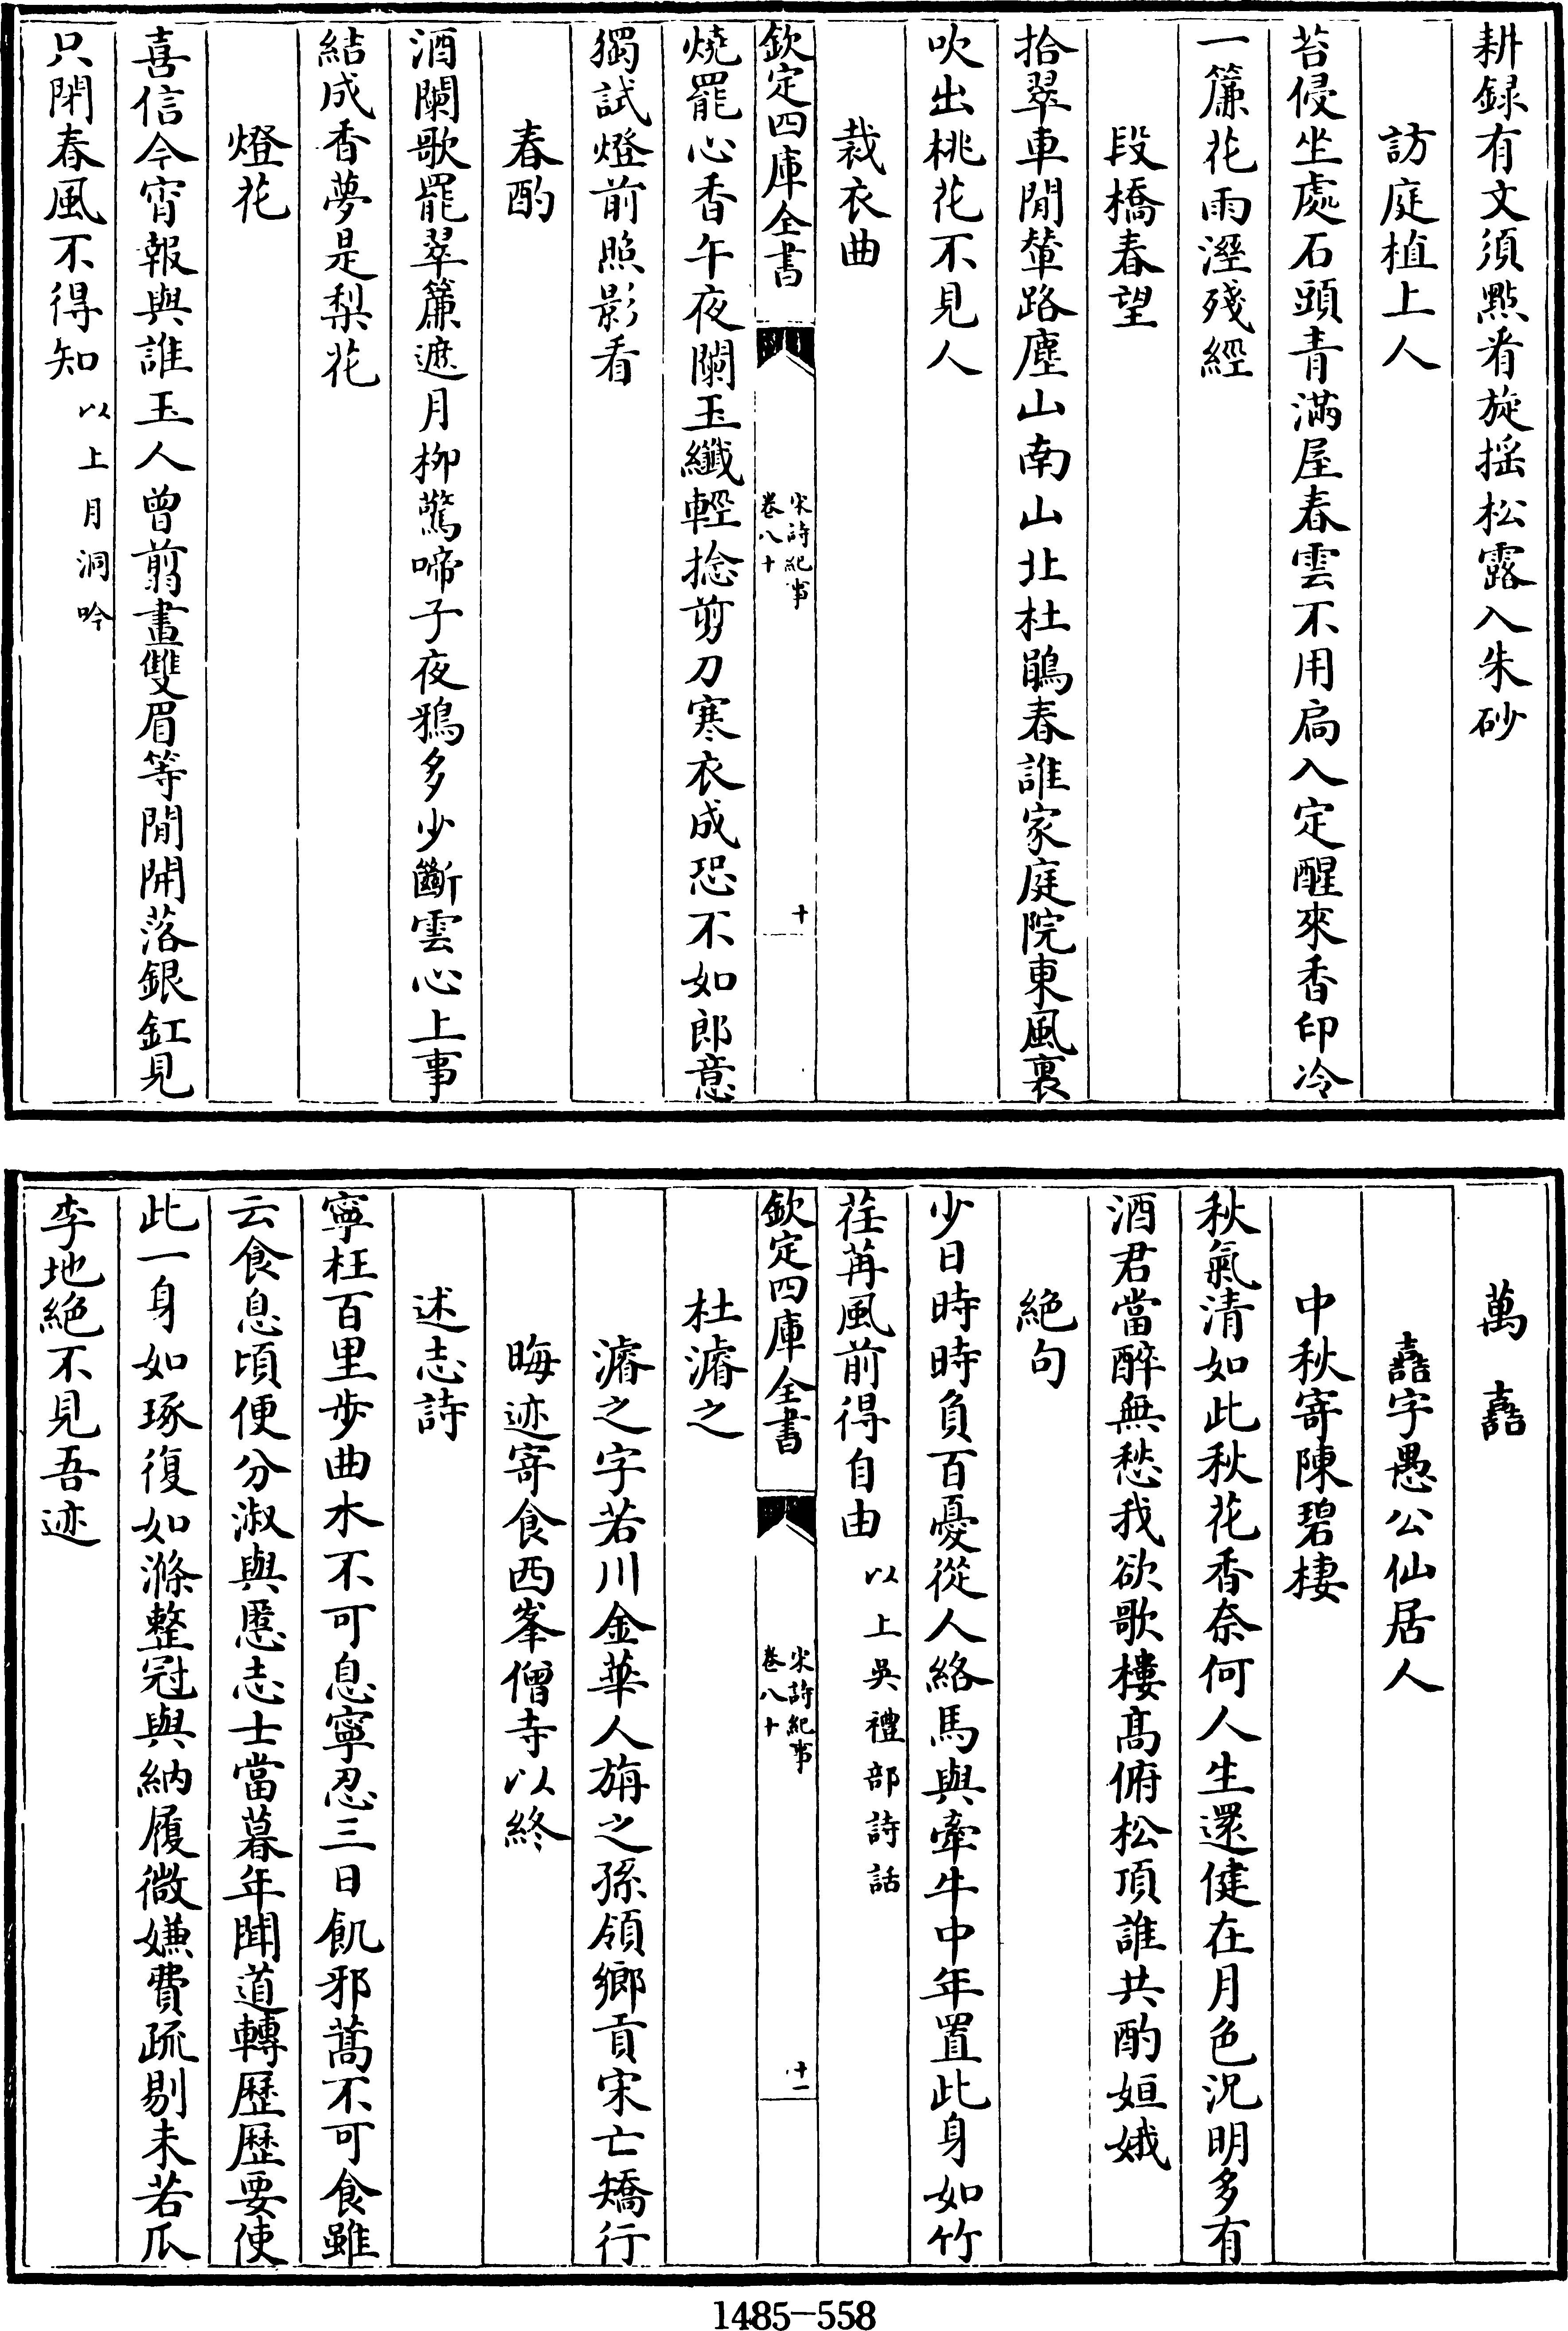 耕録有文須㸃看旋揺松露入朱砂
訪庭植上人
苔侵坐處石頭青滿屋春雲不用扃入定醒來香印冷
一簾花雨溼殘經
段橋春望
拾翠車閒輦路塵山南山北杜鵑春誰家庭院東風裏
吹出桃花不見人
裁衣曲
欽定四庫全書
宋詩紀事
卷八十
十
燒罷心香午夜闌玉纖輕捻剪刀寒衣成恐不如郎意
獨試燈前照影看
春酌
酒闌歌罷翠簾遮月柳驚啼子夜鴉多少斷雲心上事
結成香夢是梨花
燈花
喜信今宵報與誰玉人曾剪畫雙眉等閒開落銀釭見
只閉春風不得知以上月洞吟
萬嚞
嚞字愚公仙居人
中秋寄陳碧棲
秋氣清如此秋花香奈何人生還健在月色況明多有
酒君當醉無愁我欲歌樓髙俯松頂誰共酌姮娥
絶句
少日時時負百憂從人絡馬與牽牛中年置此身如竹
荏苒風前得自由以上吳禮部詩話
欽定四庫全書
宋詩紀事
卷八十
十一
杜濬之
濬之字若川金華人旃之孫領鄉貢宋亡矯行
晦迹寄食西峯僧寺以終
述志詩
寧枉百里步曲水不可息寧忍三日飢邪蒿不可食雖
云食息頃便分淑與慝志士當暮年聞道轉歴歴要使
此一身如琢復如滌整冠與納履微嫌費疏剔未若瓜
李地絶不見吾迹
1485-558